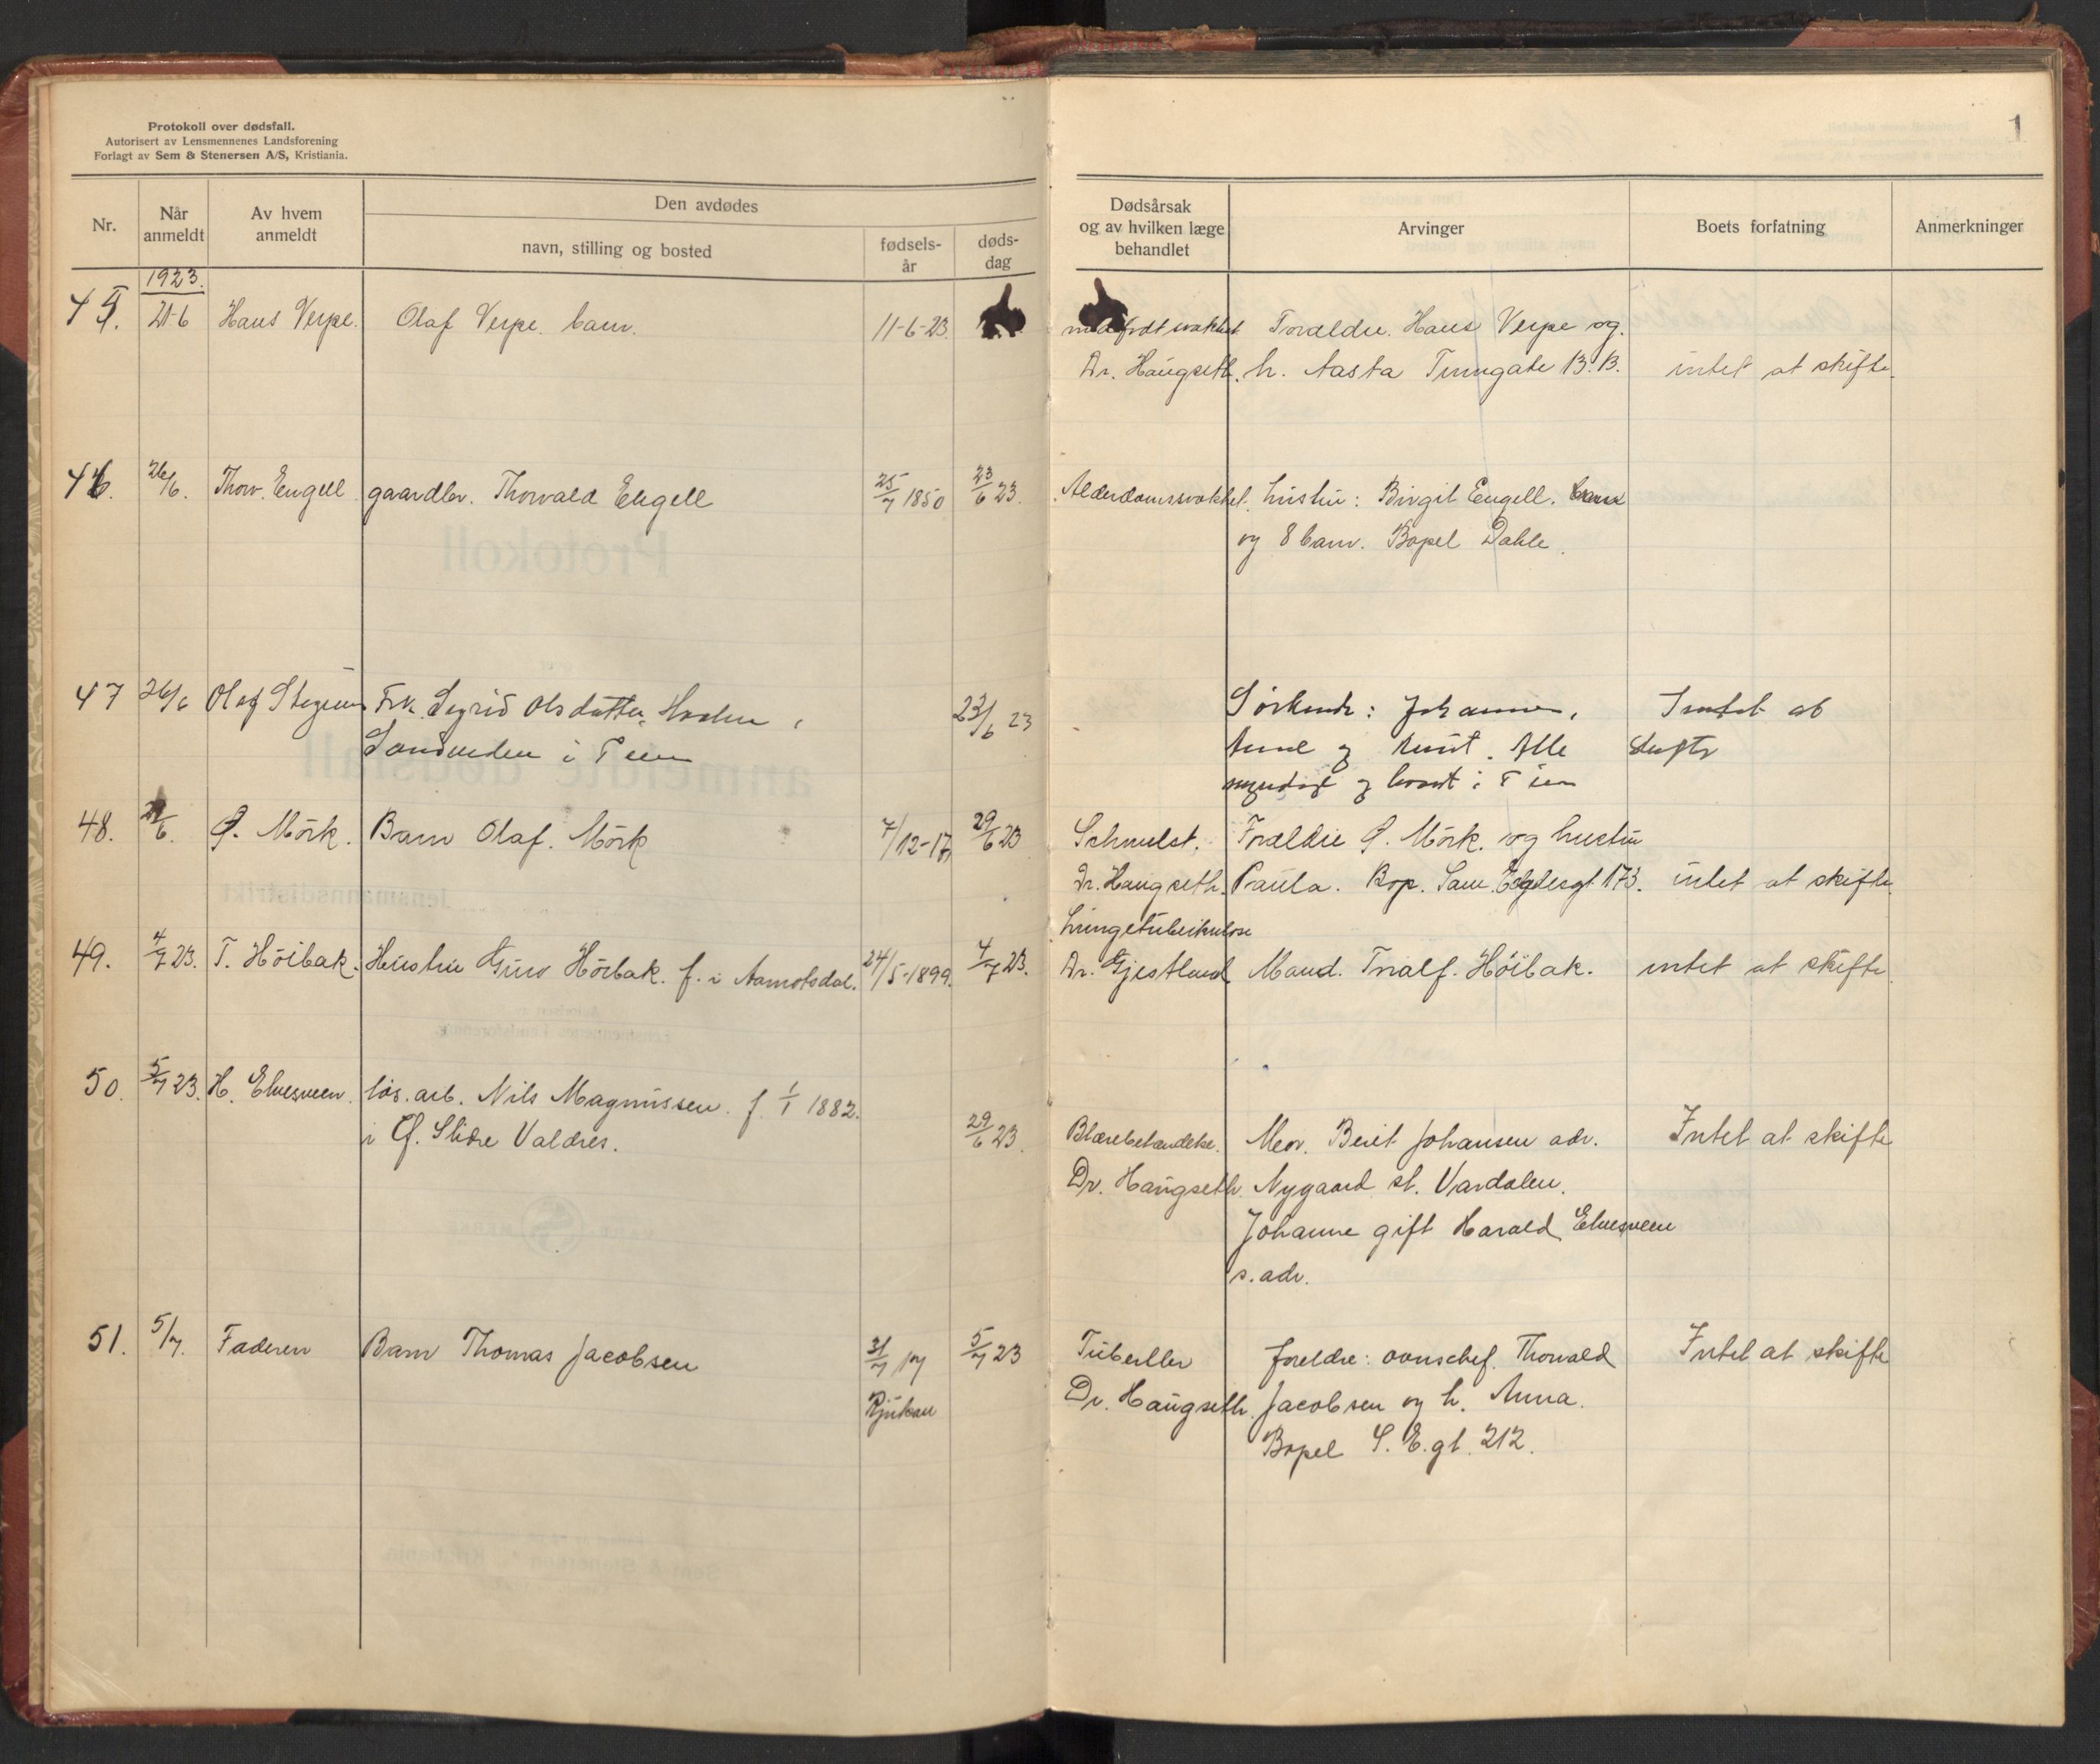 Protokoll over dødsfall.
Autorisert av Lensmennenes Landsforening
Forlagt av Sem & Stenersen A/S, Kristiania.
1
Nr.
Når anmeldt
Av hvem anmeldt
Den avdødes
navn, stilling og bosted
fødsels-år
døds-dag
Dødsårsak og av hvilken læge behandlet
Arvinger
Boets forfatning
Anmerkninger
1923.
45. 21-6 Hans Verpe. Olaf Verpe. barn. 11-6-23. medfødt svakhet Forældre. Hans Verpe og.
Dr. Haugseth. h. Aasta Tinngate 13.B. intet at skifte.
46. 26/6. Thorv. Engell gaardbr. Thorvald Engell 25/7 1850 23/6 23. Alderdomssvakhet. hustru: Birgit Engell.
og 8 barn. Bopel Dahle.
47 26/6 Olaf Frk. Sigrid Olsdatter 23/6 23 Søskende: Johannes, Intet at
i Tinn Anne og Knut. Alle skifte
myndige og bosat i Tinn
48. /6. O. Mörk. Barn Olaf. Mörk 7/12-17 29/6 23 Schwulst. Foreldre O. Mörk. og hustru
Dr. Haugseth. Paula. Bop. Sam. Eydesgt. 173. intet at skifte.
Lungetuberkulose
49. 4/7 23. T. Höibak. Hustru Guro Höibak. f. i Aamotsdal. 24/5-1899. 4/7 23. Dr. Gjestland Mand. Troalf. Höibak. intet at skifte.
50. 5/7 23. H. Elvesveen. løs. arb. Nils Magnussen. f. 1/1 1882.
i Ø. Slidre Valdres. 29/6 23. Blærebetændelse. Mor. Berit Johansen adr. Intet at skifte
Dr. Haugseth. Nygaard st. Vardalen.
Johanne gift Harald Elvesveen
s. adr.
51. 5/7. Faderen Barn Thomas Jacobsen 31/7 17 5/7 23 Tuberkler foreldre: ovnschef. Thorvald Intet at skifte
Rjukan Dr. Haugseth. Jacobsen og h. Anna.
Bopel S. E. gt. 212.